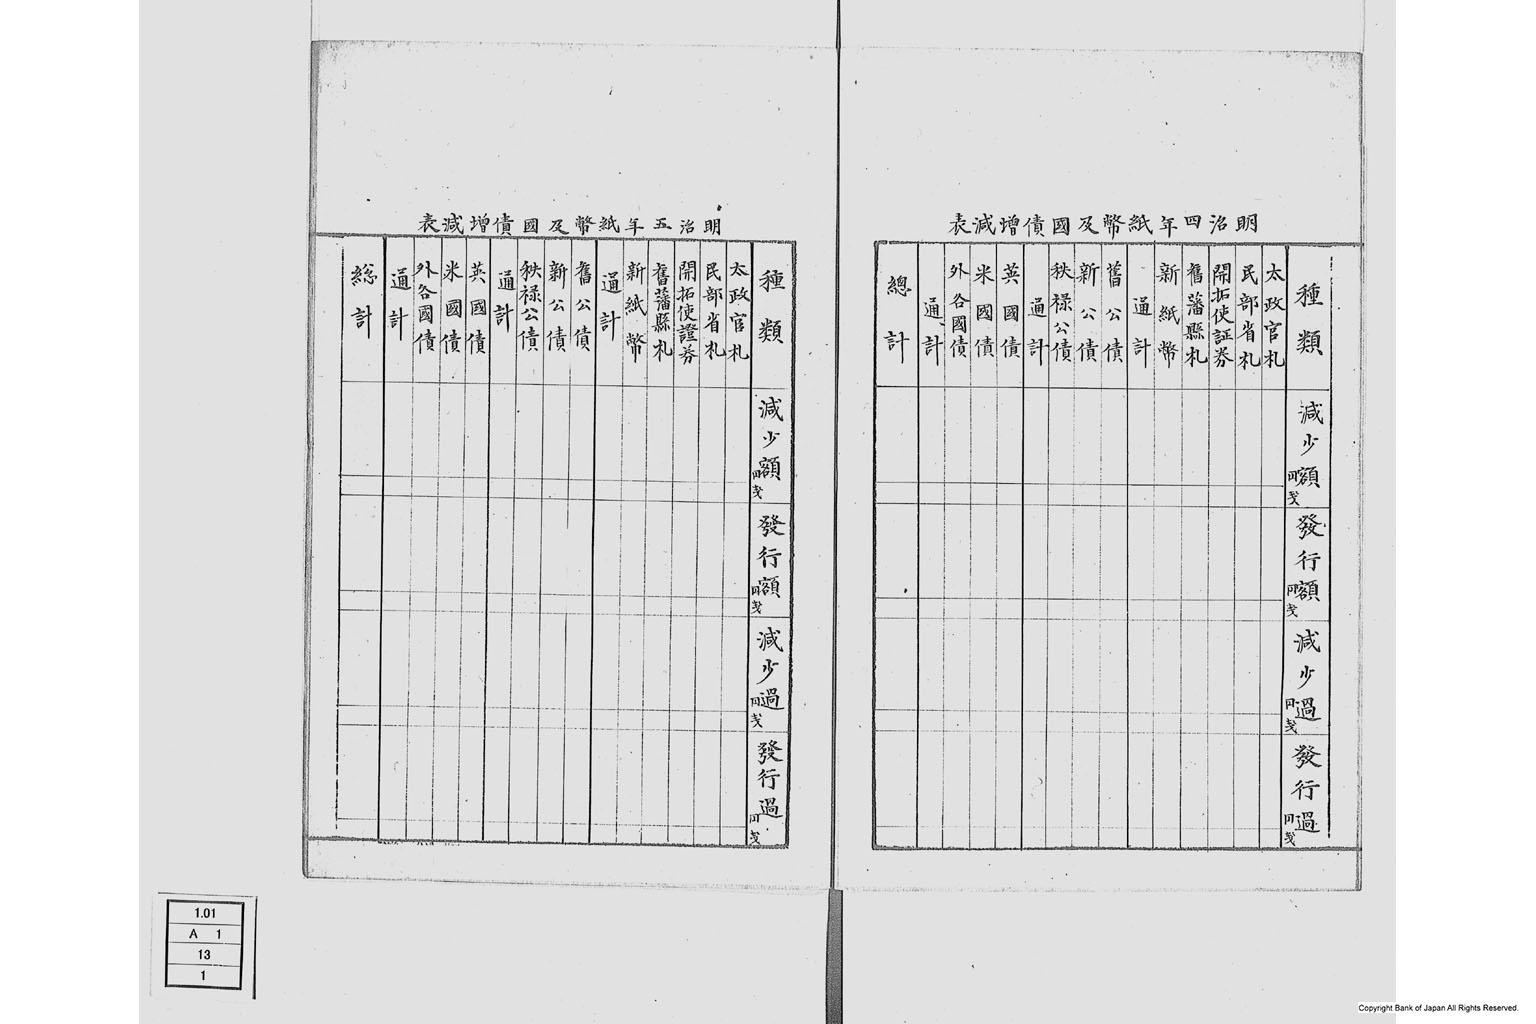 明治四年紙幣及國債増減表
種類
減少額
円
戔
發行額
円
戔
減少過
円
戔
發行過
円
戔
太政官札
民部省札
開拓使証券
舊藩縣札
新紙幣
通計
舊公債
新公債
秩禄公債
通計
英國債
米國債
外各國債
通計
總計
明治五年紙幣及國債増減表
種類
減少額
円
戔
發行額
円
戔
減少過
円
戔
發行過
円
戔
太政官札
民部省札
開拓使證券
舊藩縣札
新紙幣
通計
舊公債
新公債
秩禄公債
通計
英國債
米國債
外各國債
通計
総計
1.01
A 1
13
1
Copyright Bank of Japan All Rights Reserved.